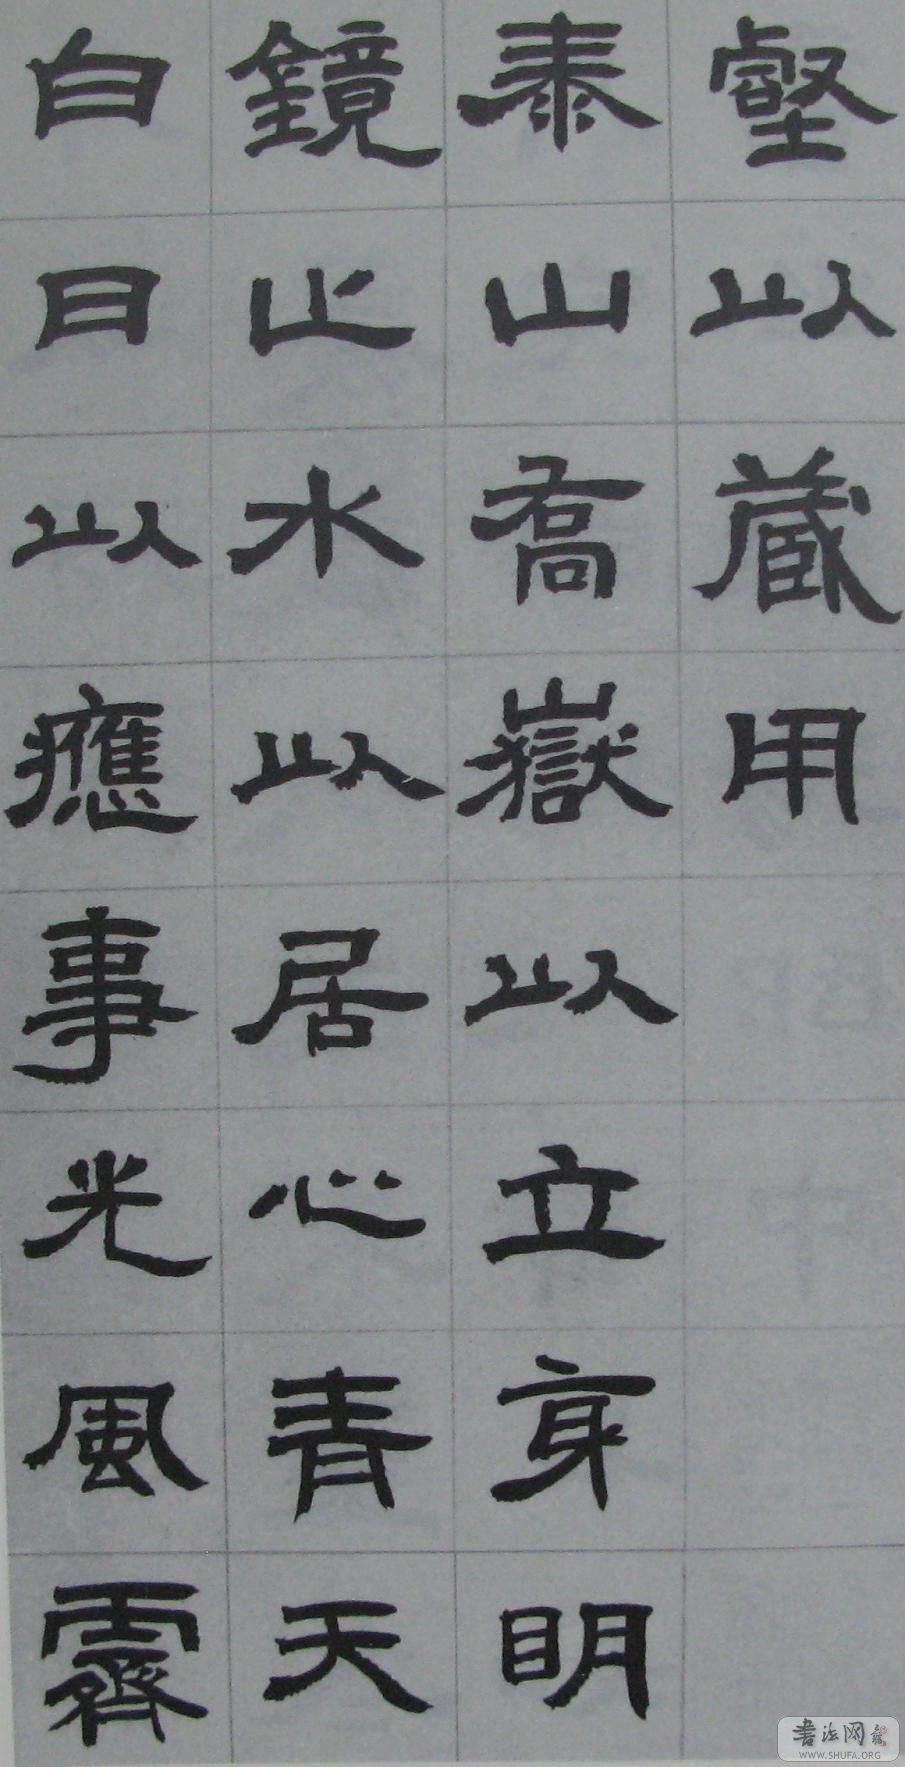 壑以藏用
泰山喬嶽以立身明
鏡止水以居心青天
白日以應事光風霽
書法网
WWW.SHUFA.ORG